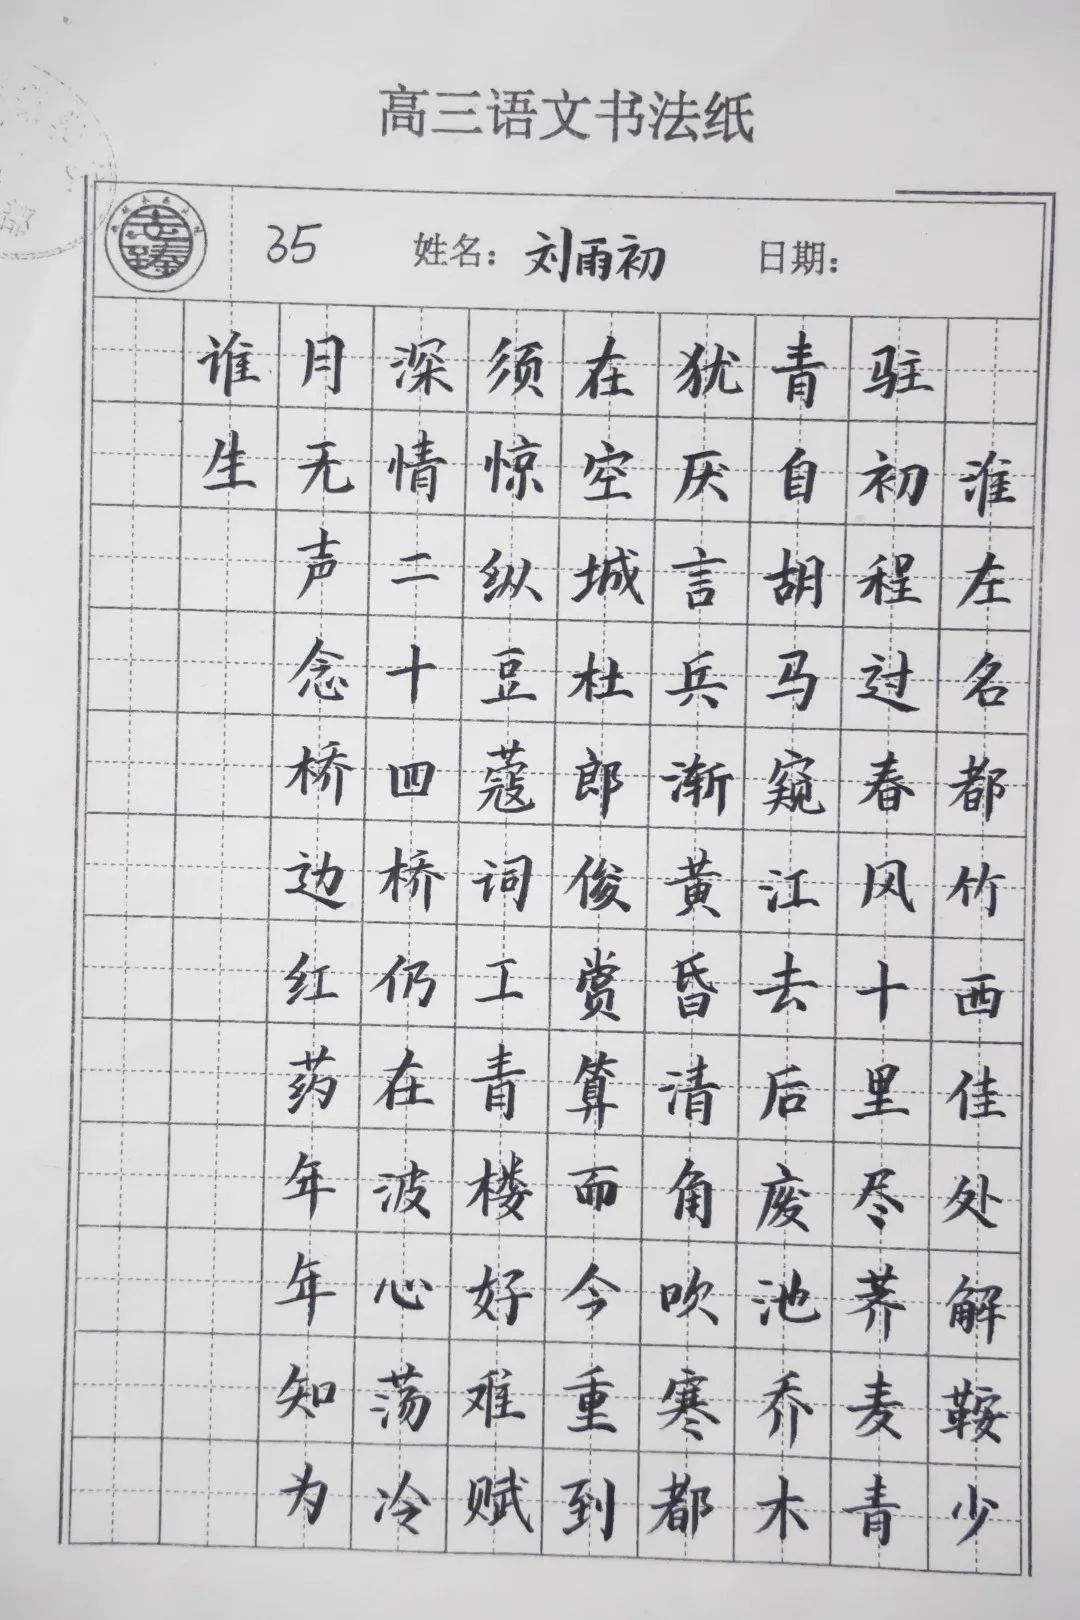 高三语文书法纸
35 姓名：刘雨初 日期：
淮左名都竹西佳处解鞍少
驻初程过春风十里尽荠麦青
青自胡马窥江去后废池乔木
犹厌言兵渐黄昏清角吹寒都
在空城杜郎俊赏算而今重到
须惊纵豆蔻词工青楼好难赋
深情二十四桥仍在波心荡冷
月无声念桥边红药年年知为
谁生
志臻
部